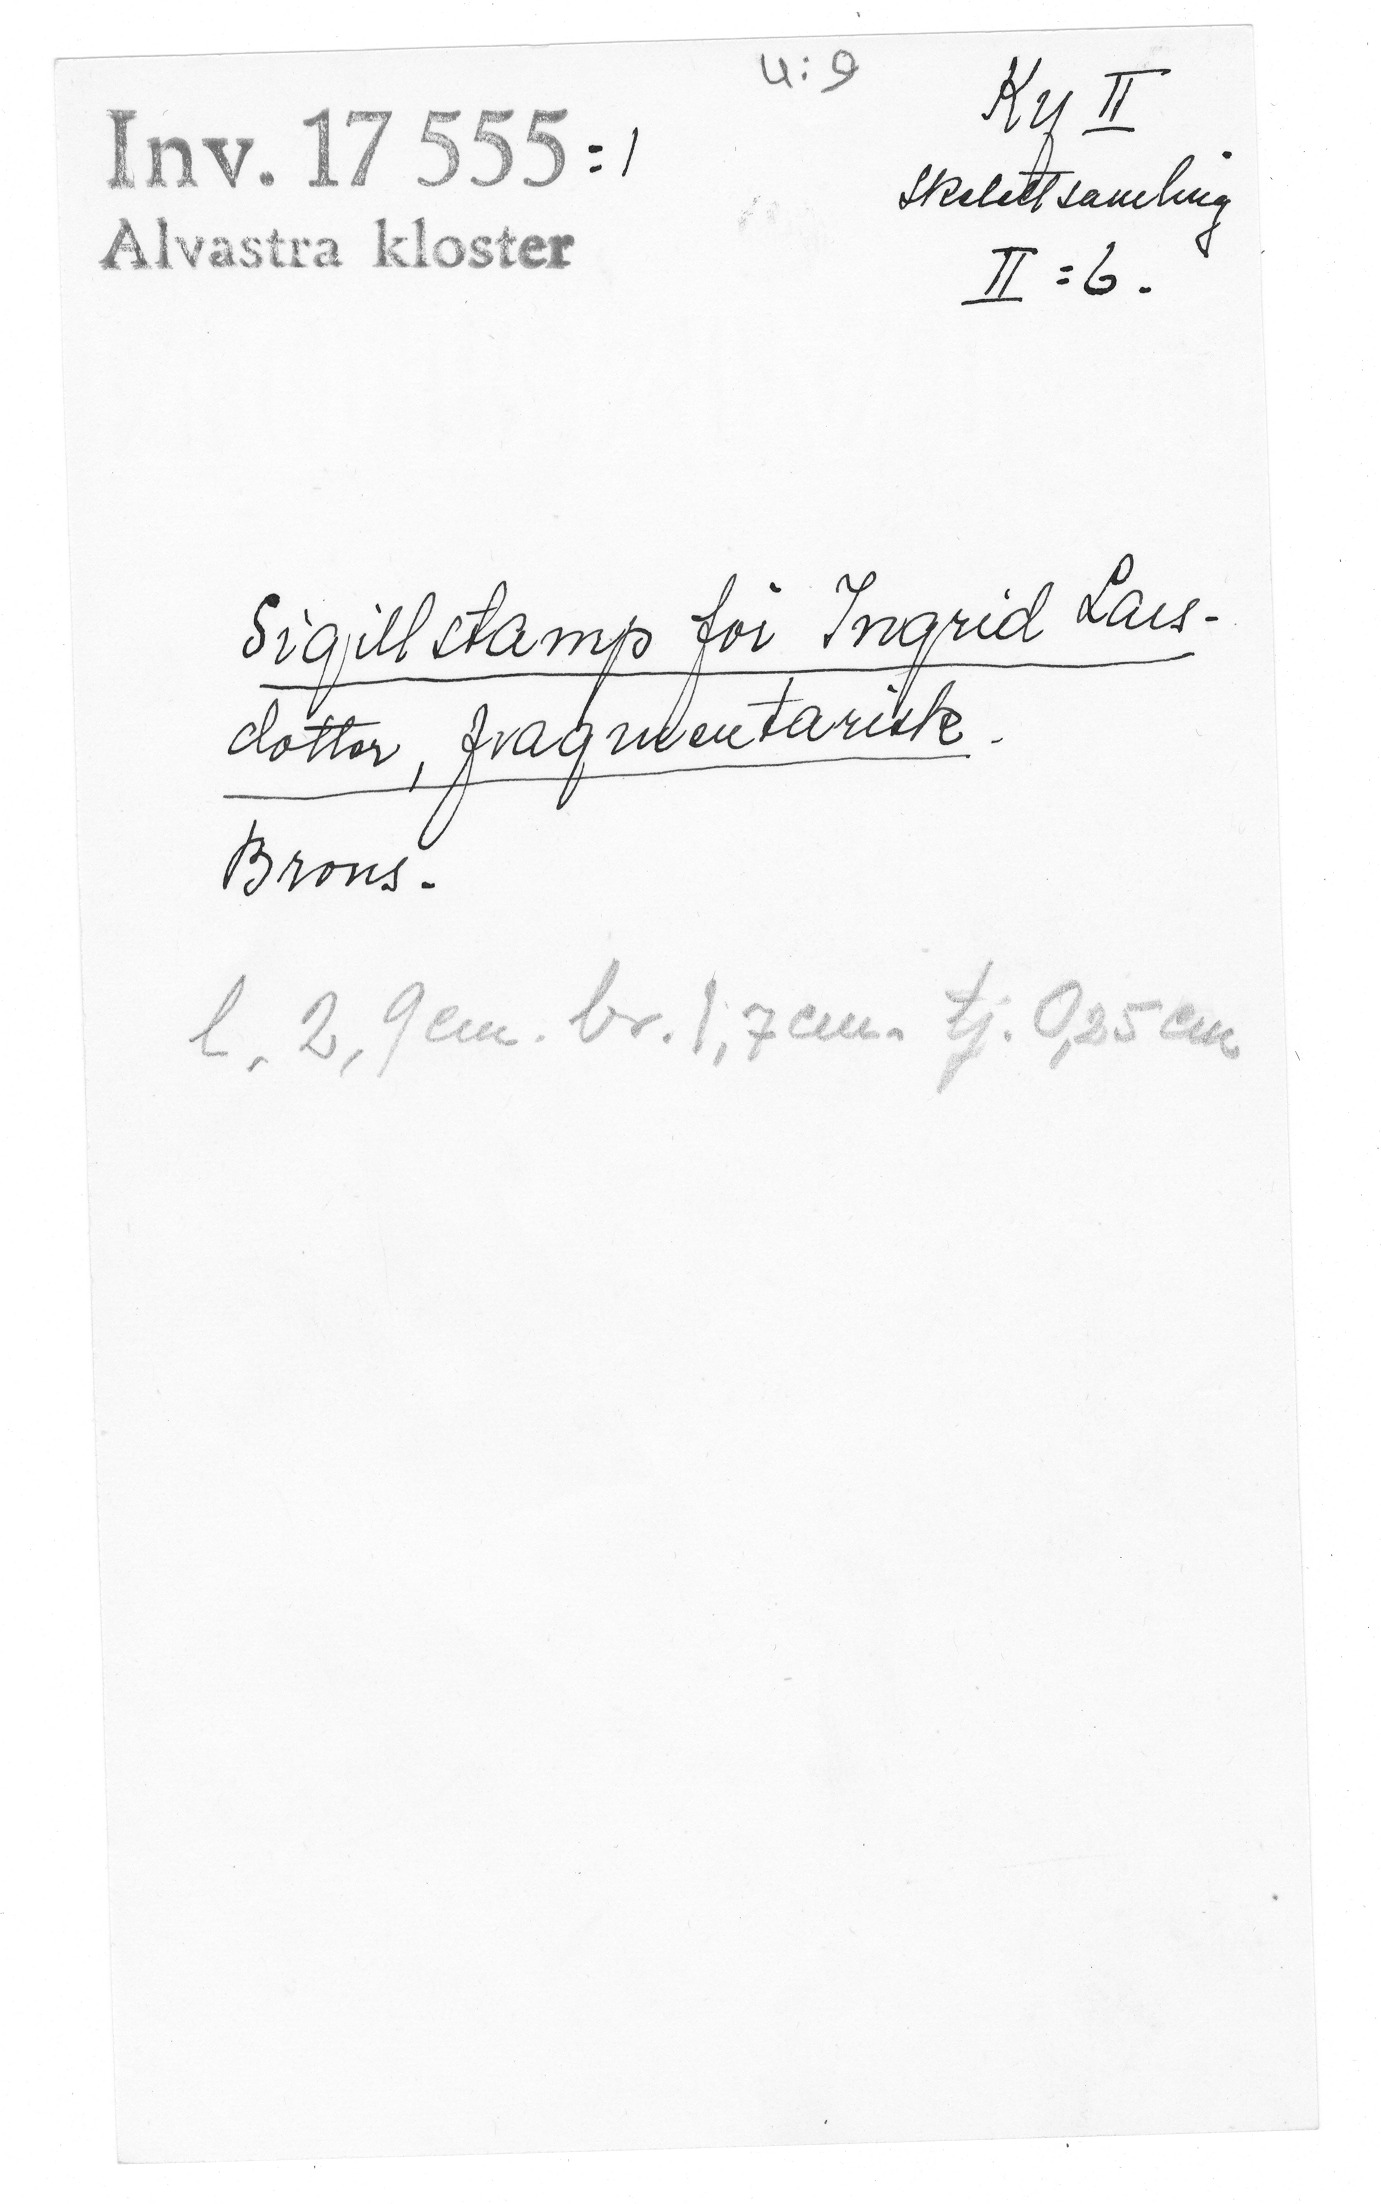 u:9
Ky II
Inv. 17 555:1
skelettsamling
Alvastra kloster
II:6.
Sigillstamp för Ingrid Lars-
dotter, fragmentarisk.
Brons.
l. 2,9 cm. br. 1,7 cm. tj. 0,25 cm